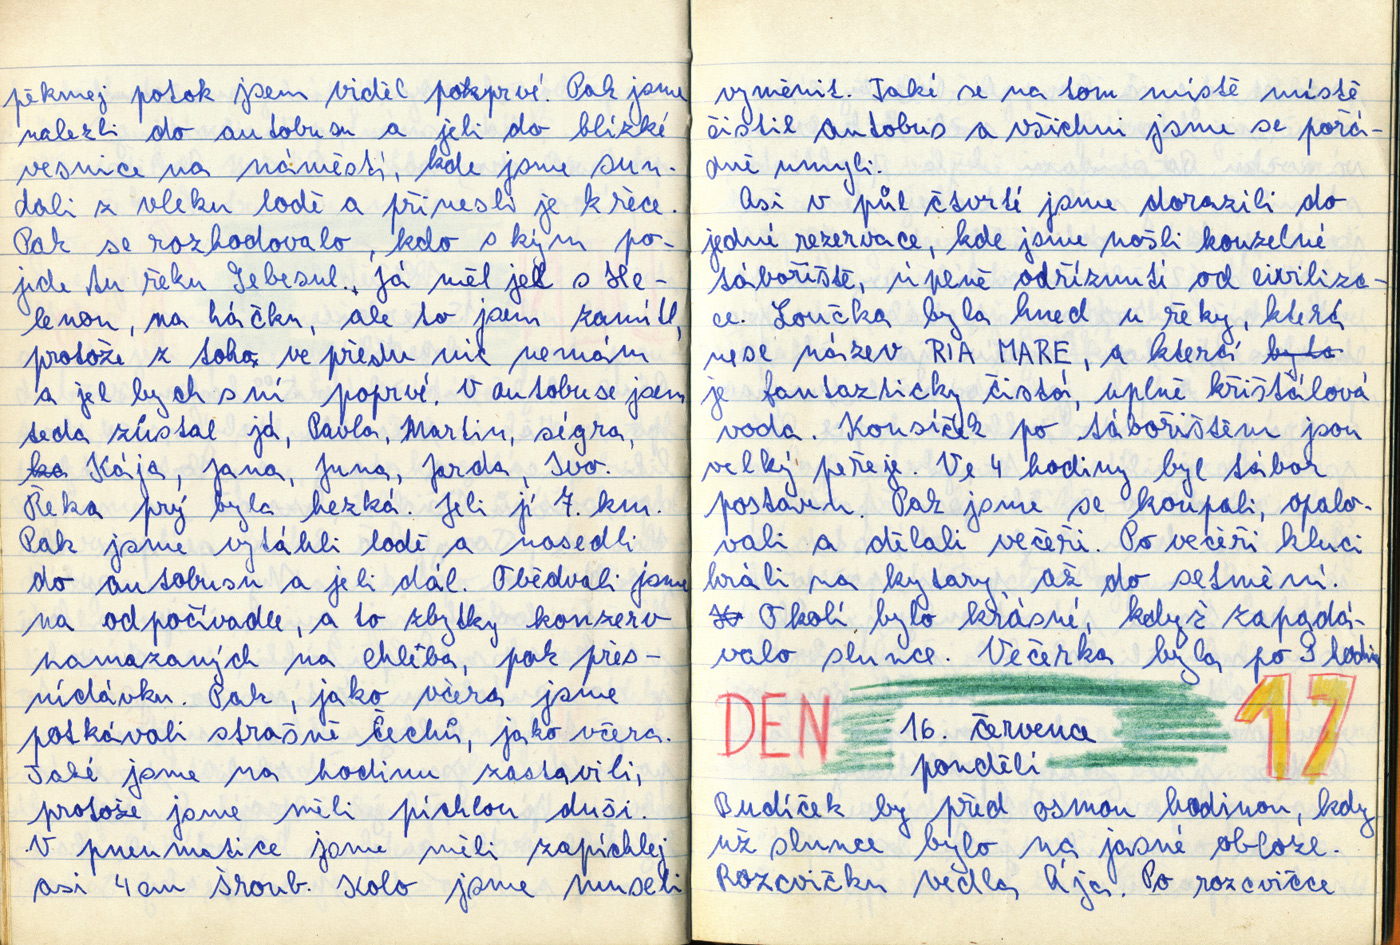 pěknej potok jsem viděl poprvé. Pak jsme
nalezli do autobusu a jeli do blízké
vesnice na náměstí, kde jsme sun-
dali z vleku lodě a přinesli je k řece.
Pak se rozhodovalo, kdo s kým po-
jede tu řeku Sebesul. Já měl jet s He-
lenou, na háčku, ale to jsem zamítl,
protože z toho ve přesdu nic nemám
a jel bych s ní poprvé. V autobuse jsem
teda zůstal já, Pavla, Martin, ségra,
ka Kája, Jana, Juna, Jarda, Ivo.
Řeka prý byla hezká. Jeli jí 7. km.
Pak jsme vytáhli lodě a nasedli
do autobusu a jeli dál. Obědvali jsme
na odpočívadle, a to zbytky konzerv
namazaných na chleba, pak přes-
nídávku. Pak, jako včera jsme
potkávali strašně Čechů, jako včera.
Také jsme na hodinu zastavili,
protože jsme měli píchlou duši.
V pneumatice jsme měli zapíchlej
asi 4 cm šroub. Kolo jsme museli
vyměnit. Také se na tom místě místě
čistil autobus a všichni jsme se pořá-
dně umyli.
Asi v půl čtvrté jsme dorazili do
jedné rezervace, kde jsme našli kouzelné
tábořiště, úplně odříznutí od civiliza-
ce. Loučka byla hned u řeky, která
nese název RIA MARE, a která byla
je fantazticky čistá, uplně křišťálová
voda. Kousíček po tábořištěm jsou
velký peřeje. Ve 4 hodiny byl tábor
postaven. Pak jsme se koupali, opalo-
vali a dělali večeři. Po večeři kluci
hráli na kytary, až do setmění.
Okolí bylo krásné, když zapadá-
valo slunce. Večerka byla po 9 hodin
DEN 17
16. července
pondělí
Budíček by před osmou hodinou, kdy
už slunce bylo na jasné obloze.
Rozcvičku vedla Ája. Po rozcvičce